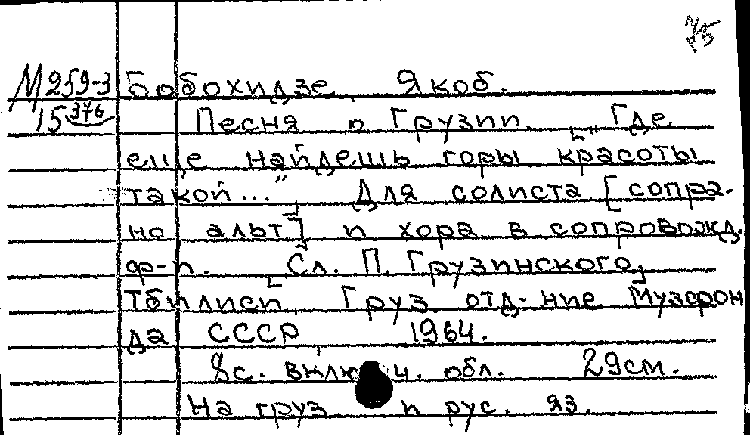 75
М259-3 Бобохидзе, Якоб.
15 376 Песня о Грузии. ["Где
еще найдешь горы красоты
такой..." Для солиста [сопра-
но альт] и хора в сопровожд.
ф-п. [Сл. П. Грузинского]
Тбилиси, Груз. отд-ние Музфон
да СССР, 1964.
8с. включ. обл. 29см.
На груз и рус. яз.